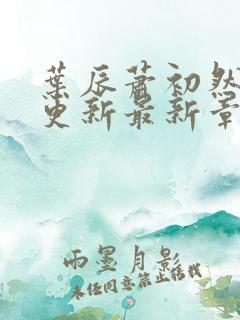 葉辰蕭初然
更新最新章
雨墨月影
未经同意禁止转载